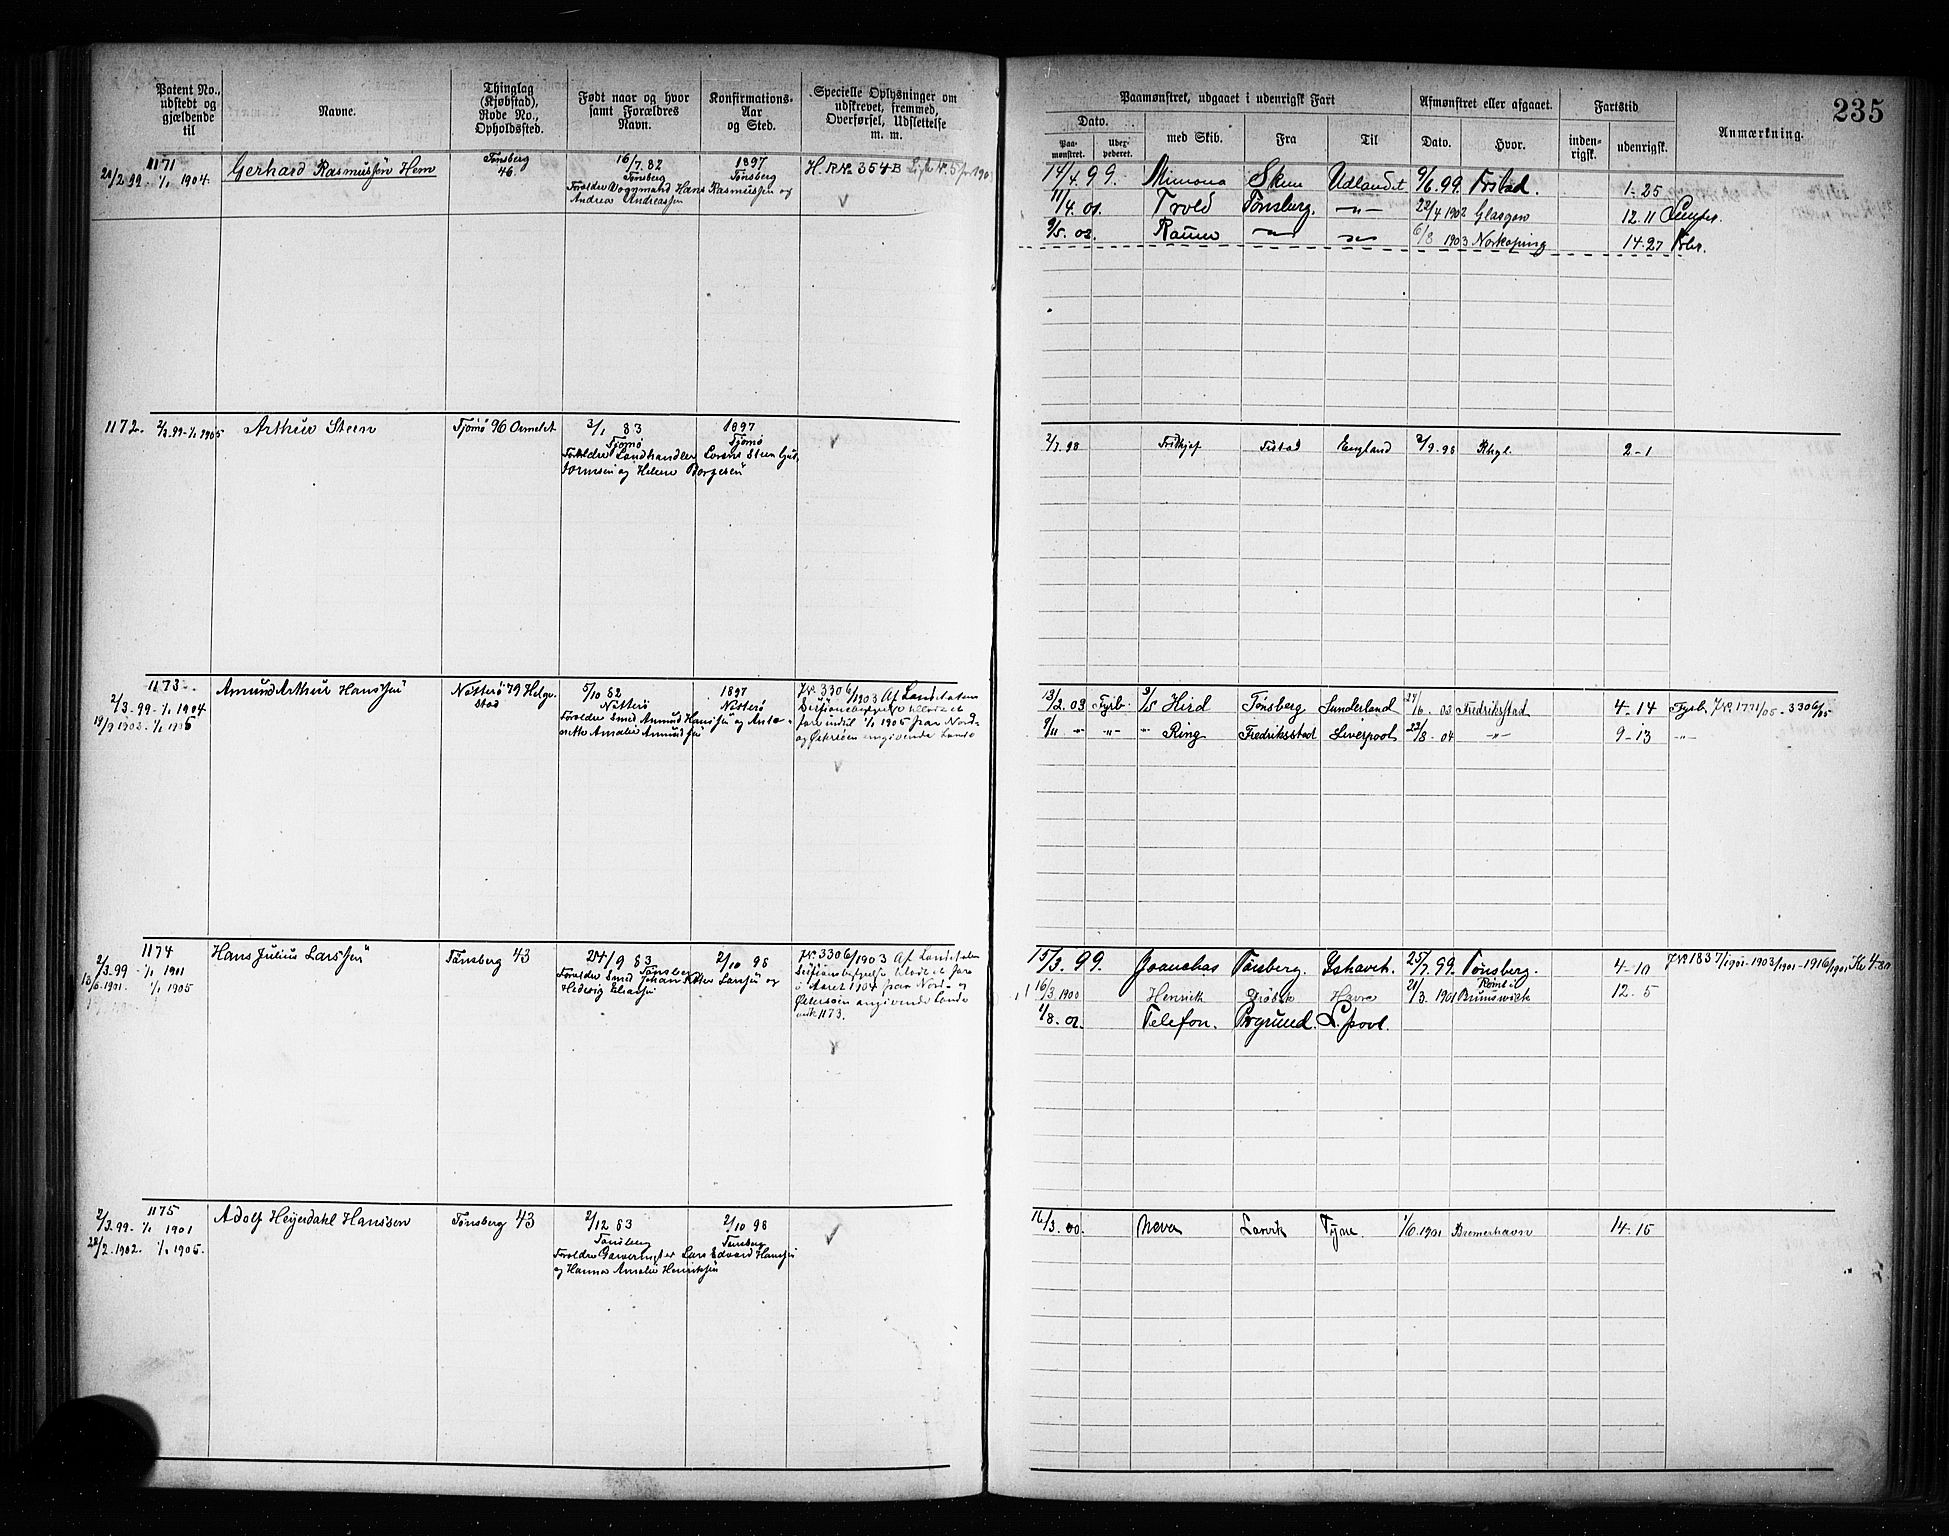 235
Patent No., udstedt og gjældende til
Navne.
Thinglag (Kjøbstad), Rode No., Opholdssted.
Født naar og hvor samt Forældres Navn.
Konfirmations-Aar og Sted.
Specielle Oplysninger om udskrevet, fremmed, Overførsel, Udslettelse m. m.
Paamønstret, udgaaet i udenrigsk Fart
Afmønstret eller afgaaet.
Fartstid
Anmærkning.
Dato.
Paa-mønstret.
med Skib.
Fra
Til
Dato.
Hvor.
inden-rigsk.
udenrigsk.
1171
2/99 1/1 1904.
Gerhard Rasmussen Hem
Tønsberg 46.
16/7. 82 Tønsberg
Forældre Vognmand Hans Rasmussen og
Andrea Andreassen
1897 Tønsberg
H.R.№ 354B
14/4. 99. Mimona Skien Udlandet 9/6. 99. Frstad. 1-25
11/4. 01. Trold Tønsberg. -"- 22/4 1902 Glasgow 12. 11
9/5. 02. -"- 6/8 1903 Norkøping 14. 27
1172. 2/3.99-1/1 1905
Arthur Steen
Tjømø 96 Ormelet
3/1 83
Tjømø
Forældre Landhandler Lorens Steen
og Helene Borgesen
1897
Tjømø
2/7. 98 Fridthjof England 3/9. 98 Rhyl. 2-1
1173
2/3. 99-1/1 1904
19/9 1903-1/1 1905
Amund Arthur Hanssen
Nøtterø 79 Helge-
stad
5/10 82
Nøtterø
Forældre Smed Amund Hanssen og Anto-
nette Amalie Amundsen
1897
Nøtterø
J.№ 3306/1903 Af Landetaten
indtil 1/1 1905 paa Nord-
og Østersøen angivende Lande
13/2. 03 Fyrb. 3/5 Hird Tønsberg Sunderland 27/6. 03 Fredriksstad 4-14 Fyrb. J.№ 1771/05-3306/05
9/11 -"- -"- -"- Ring Fredriksstad Liverpool 23/8-04 -"- 9-13 -"-
1174
2/3.99-1/1 1901
13/6.1901. 1/1 1905
Hans Julius Larssen
Tønsberg 43
24/9 83
Tønsberg
Forældre Smed Johan Peter Larsen og
Hedevig Eliassen
2/10 98
J.№ 3306/1903 Af Landetaten
i Aaret 1904 paa Nord- og
Østersøen angivende Lande
1173.
15/3. 99. Tønsberg. 25/7. 99. Tønsberg. 4-10 J.№ 1837/1901-1903/1901-1916/1901 Kr 4.80
16/3. 1900 Henrik Drøbak Havre 21/3. 1901 Brunswick 12. 5
1/8. 01. Telefon. Porgrund. L.pool.
1175
2/3.99-1/1 1901
22/2.1902. 1/1 1905.
Adolf Heyerdahl Hanssen
Tønsberg 43
2/12 83
Tønsberg
Forældre Garvermester Lars Edvard Hanssen
og Hanna Amalie Henriksen
2/10 98
Tønsberg
16/3. 00. Neva Larvik Tyne. 1/6. 1901 Bremerhavn 14. 15